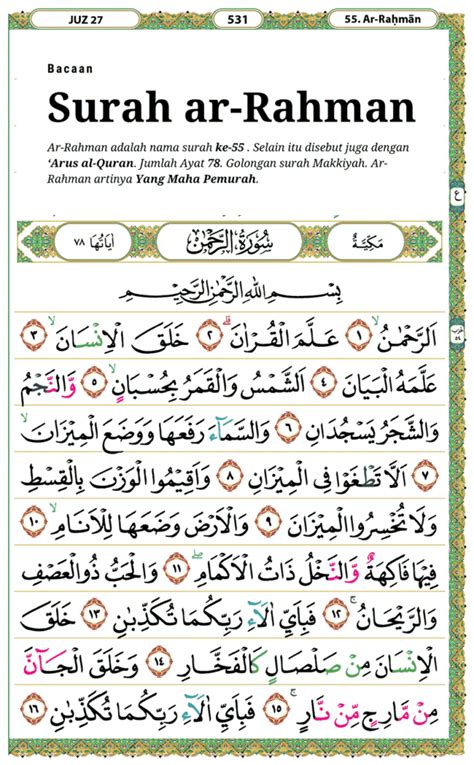 JUZ 27 531 55. Ar-Raḥmān
Bacaan
Surah ar-Rahman
Ar-Rahman adalah nama surah ke-55 . Selain itu disebut juga dengan
‘Arus al-Quran. Jumlah Ayat 78. Golongan surah Makkiyah. Ar-
Rahman artinya Yang Maha Pemurah.
مَكِيَّةٌ سُورَةُ الرَّحْمٰنِ اٰيَاتُهَا ٧٨
بِسْمِ اللّٰهِ الرَّحْمٰنِ الرَّحِيْمِ
اَلرَّحْمٰنُۙ ١ عَلَّمَ الْقُرْاٰنَۗ ٢ خَلَقَ الْاِنْسَانَۙ ٣
عَلَّمَهُ الْبَيَانَ ٤ اَلشَّمْسُ وَالْقَمَرُ بِحُسْبَانٍۙ ٥ وَّالنَّجْمُ
وَالشَّجَرُ يَسْجُدَانِ ٦ وَالسَّمَاۤءَ رَفَعَهَا وَوَضَعَ الْمِيْزَانَۙ
٧ اَلَّا تَطْغَوْا فِى الْمِيْزَانِ ٨ وَاَقِيْمُوا الْوَزْنَ بِالْقِسْطِ
وَلَا تُخْسِرُوا الْمِيْزَانَ ٩ وَالْاَرْضَ وَضَعَهَا لِلْاَنَامِۙ ١٠
فِيْهَا فَاكِهَةٌ وَّالنَّخْلُ ذَاتُ الْاَكْمَامِۖ ١١ وَالْحَبُّ ذُو الْعَصْفِ
وَالرَّيْحَانُۚ ١٢ فَبِاَيِّ اٰلَاۤءِ رَبِّكُمَا تُكَذِّبٰنِ ١٣ خَلَقَ
الْاِنْسَانَ مِنْ صَلْصَالٍ كَالْفَخَّارِ ١٤ وَخَلَقَ الْجَاۤنَّ
مِنْ مَّارِجٍ مِّنْ نَّارٍۚ ١٥ فَبِاَيِّ اٰلَاۤءِ رَبِّكُمَا تُكَذِّبٰنِ ١٦
ع